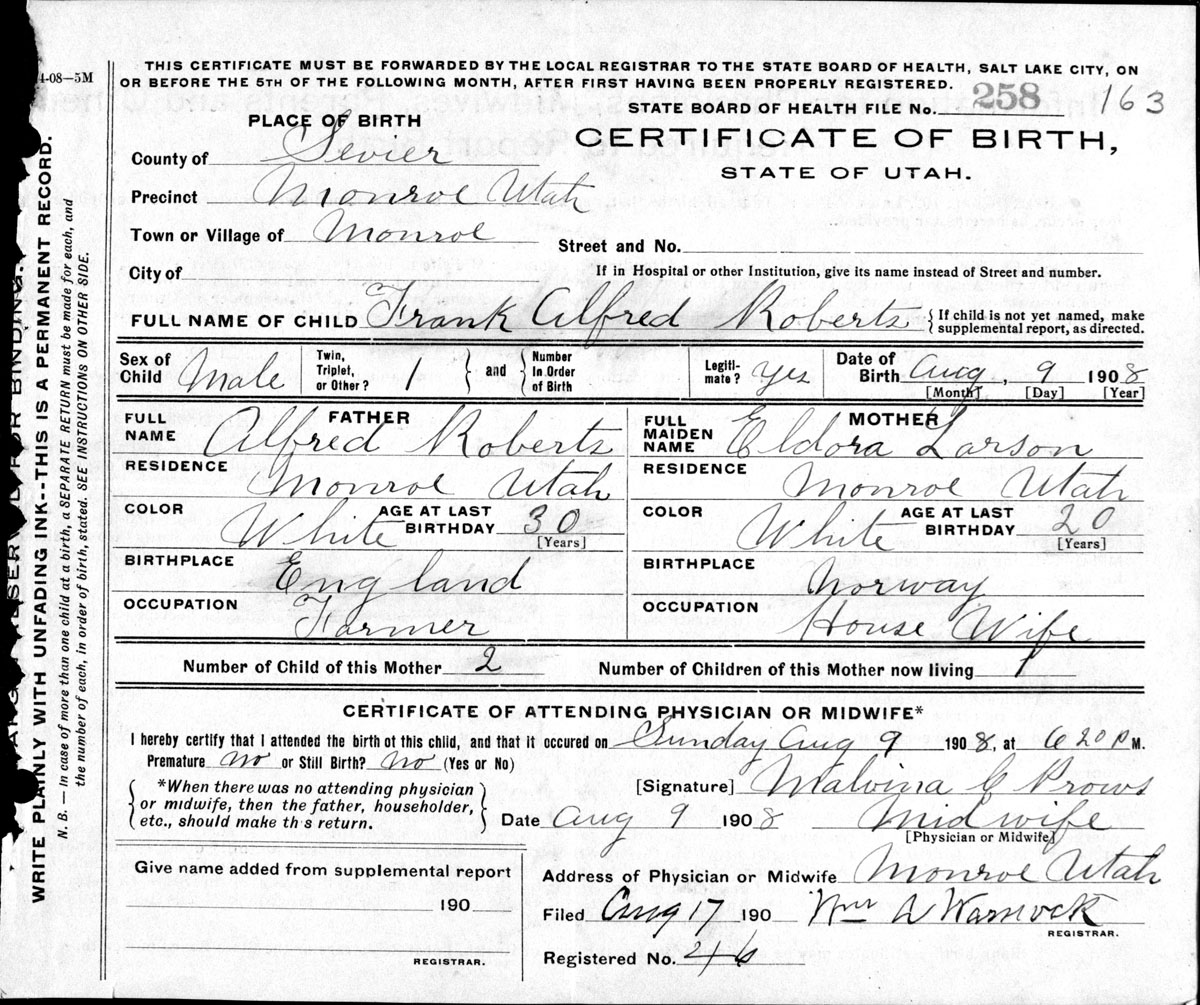 4-08—5M
THIS CERTIFICATE MUST BE FORWARDED BY THE LOCAL REGISTRAR TO THE STATE BOARD OF HEALTH, SALT LAKE CITY, ON
OR BEFORE THE 5TH OF THE FOLLOWING MONTH, AFTER FIRST HAVING BEEN PROPERLY REGISTERED.
STATE BOARD OF HEALTH FILE No. 258 163
PLACE OF BIRTH
CERTIFICATE OF BIRTH,
STATE OF UTAH.
County of Sevier
Precinct Monroe Utah
Town or Village of Monroe
Street and No.
City of
If in Hospital or other Institution, give its name instead of Street and number.
FULL NAME OF CHILD Frank Alfred Roberts { If child is not yet named, make
supplemental report, as directed.
Sex of Child Male Twin, Triplet, or Other? 1 } and { Number In Order of Birth Legiti-mate? Yes Date of Birth Aug, 9 1908
[Month] [Day] [Year]
FATHER
FULL NAME Alfred Roberts
RESIDENCE Monroe Utah
COLOR White AGE AT LAST BIRTHDAY 30
[Years]
BIRTHPLACE England
OCCUPATION Farmer
MOTHER
FULL MAIDEN NAME Eldora Larson
RESIDENCE Monroe Utah
COLOR White AGE AT LAST BIRTHDAY 20
[Years]
BIRTHPLACE Norway
OCCUPATION House Wife
Number of Child of this Mother 2 Number of Children of this Mother now living 1
CERTIFICATE OF ATTENDING PHYSICIAN OR MIDWIFE*
I hereby certify that I attended the birth of this child, and that it occured on Sunday Aug 9 1908, at 6 20 P M.
Premature No or Still Birth? No (Yes or No)
{ *When there was no attending physician
or midwife, then the father, householder,
etc., should make th s return. }
[Signature] Malvina C Prows
Date Aug 9 1908 Midwife
[Physician or Midwife]
Give name added from supplemental report
190
REGISTRAR.
Address of Physician or Midwife Monroe Utah
Filed Aug 17 190 Wm A Warnock
REGISTRAR.
Registered No. 46
WRITE PLAINLY WITH UNFADING INK--THIS IS A PERMANENT RECORD.
N. B. — In case of more than one child at a birth, a SEPARATE RETURN must be made for each, and
the number of each, in order of birth, stated. SEE INSTRUCTIONS ON OTHER SIDE.